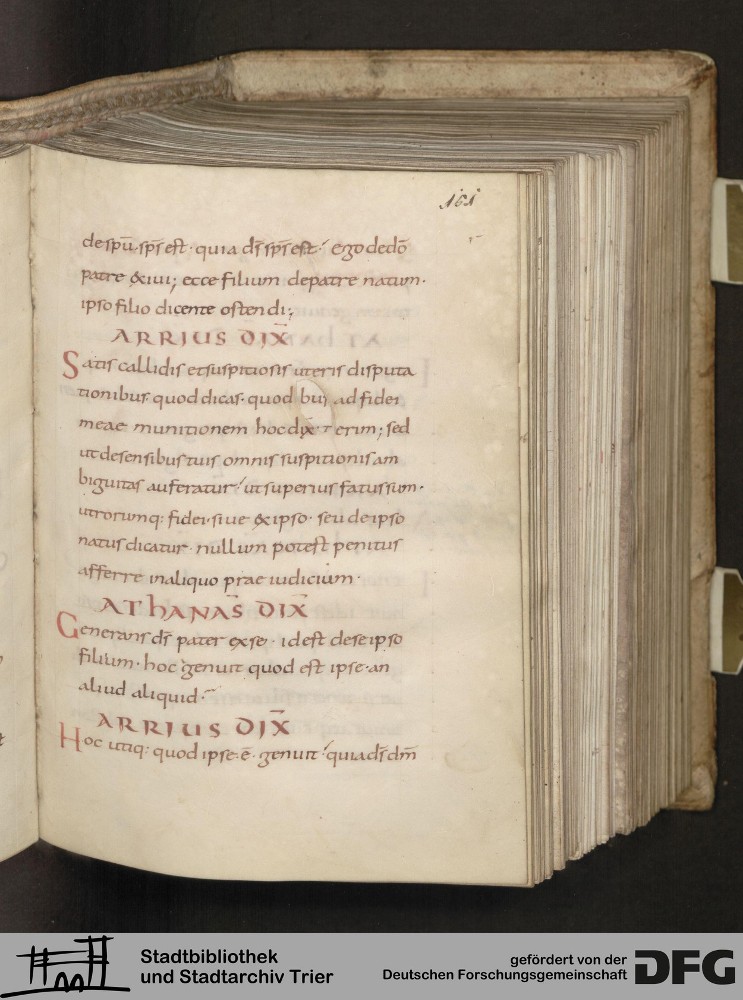 161
de spū. sp̄s est· quia d̄s sp̄s est·́ ego dedō
patre &xiui; ecce filium depatre natum·
ipso filio dicente ostendi;
ARRIUS DIX̄
Satis callidis etsuspitiosis uteris disputa
tionibus· quod dicas· quod ad fidei
meae munitionem hoc dix erim; sed
utdesensibus tuis omnis suspitionis am
biguitas auferatur·́ utsuperius fatus sum·
utrorumq: fidei· siue &xipso· seu deipso
natus dicatur· nullum potest penitus
afferre inaliquo prae iudicium·
AThANAS̄ DIX̄
Generans d̄s pater exse· idest dese ipso
filium· hoc genuit quod est ipse· an
aliud aliquid·
ARRIUS DIX̄
Hoc utiq: quod ipse· ē· genuit·́ quia d̄s dm̄
Stadtbibliothek
und Stadtarchiv Trier
gefördert von der
Deutschen Forschungsgemeinschaft
DFG